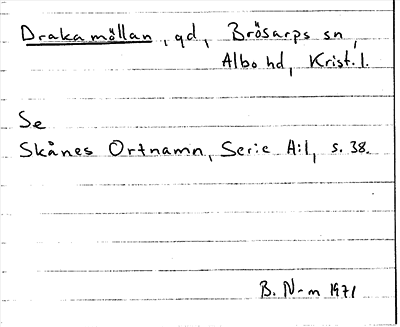 Drakamöllan, gd, Brösarps sn,
Albo hd, Krist. l.
Se
Skånes Ortnamn, Serie A:1, s. 38.
B. N-m 1971